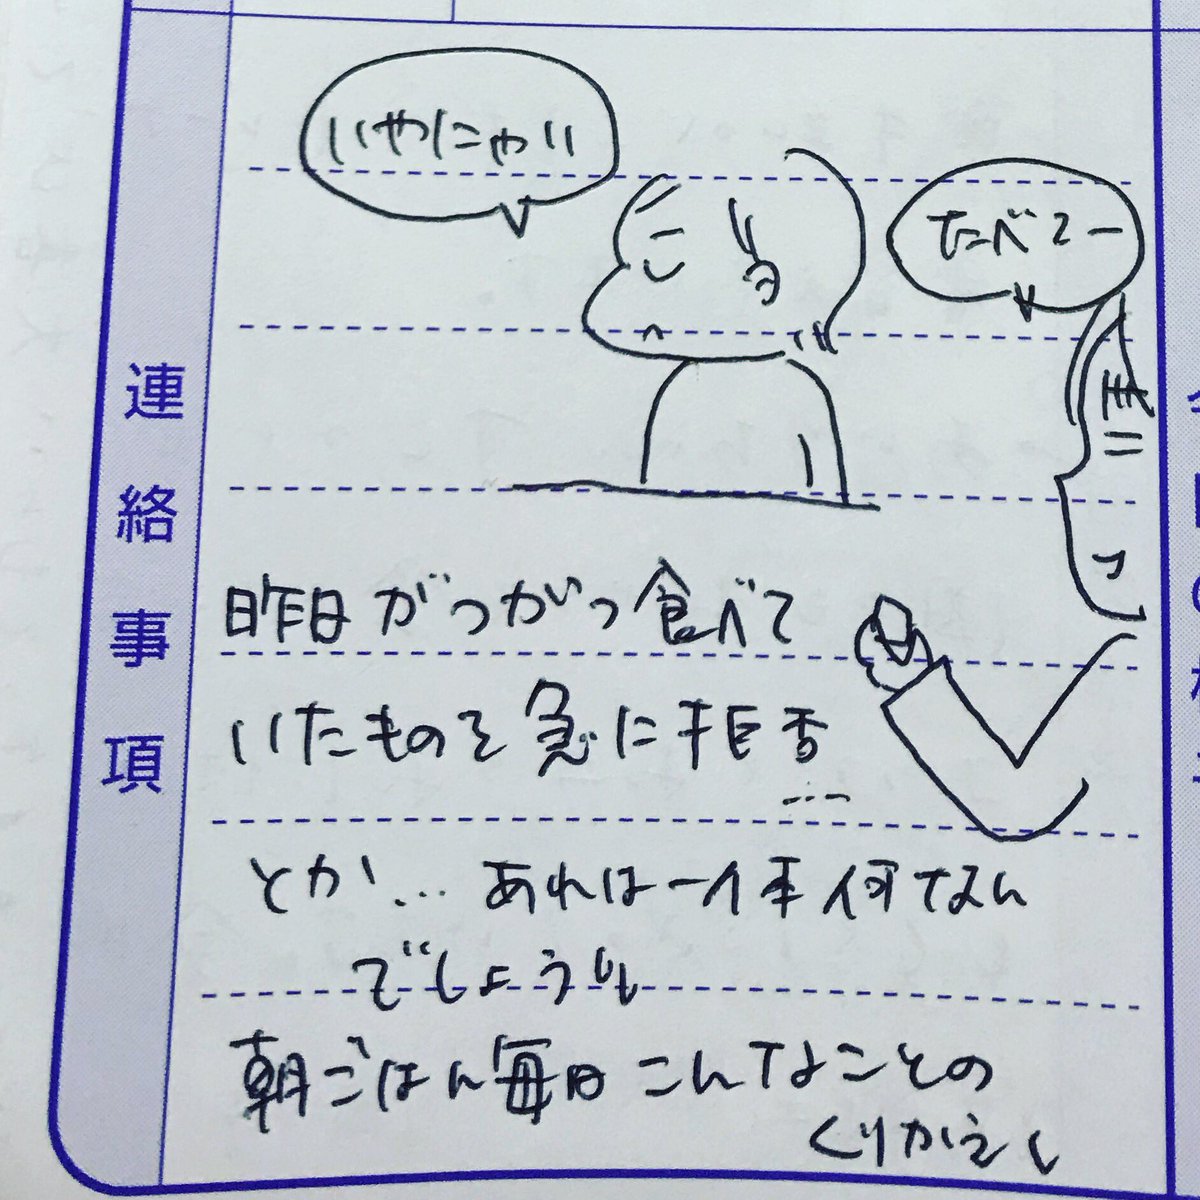 連絡事項
いやにゃい
たべてー
昨日がつがつ食べて
いたものを急に拒否
とか…あれは一体何なん
でしょうか
朝ごはん毎日こんなことの
くりかえし